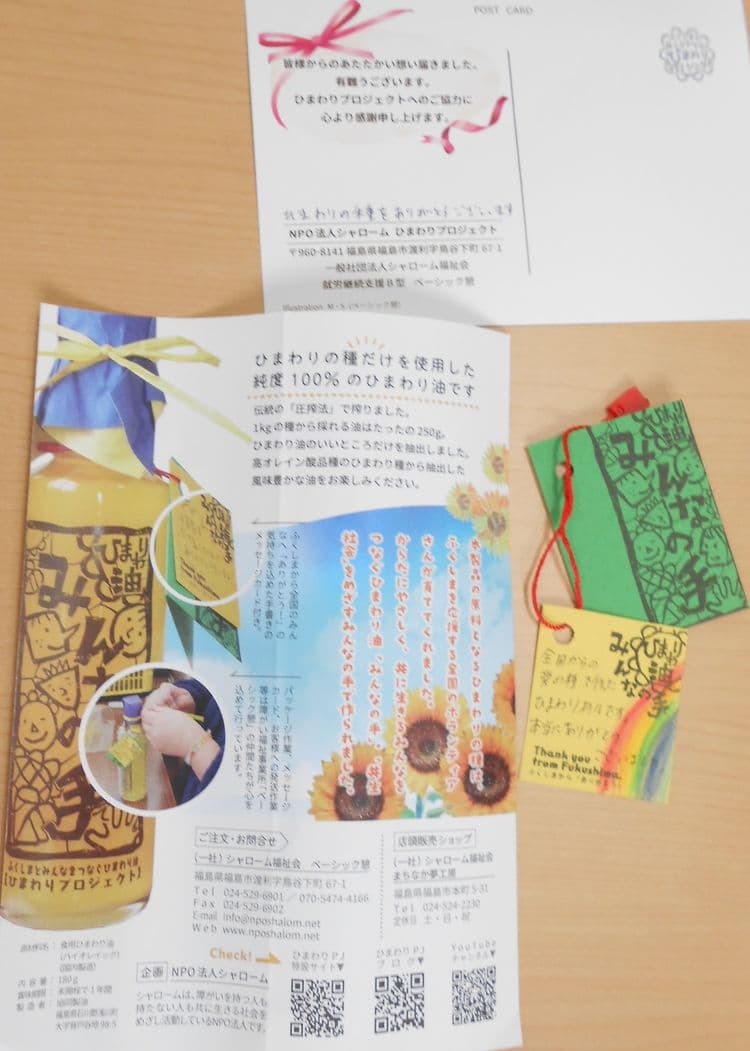 POST CARD
皆様からのあたたかい想い届きました。
有難うございます。
ひまわりプロジェクトへのご協力に
心より感謝申し上げます。
ひまわりの種をありがとうございます
NPO法人シャローム ひまわりプロジェクト
〒960-8141 福島県福島市渡利字鳥谷下町67-1
一般社団法人シャローム福祉会
就労継続支援B型 ベーシック憩
ひまわりの種だけを使用した
純度100%のひまわり油です
伝統の「圧搾法」で搾りました。
1kgの種から採れる油はたったの250g。
ひまわり油のいいところだけを抽出しました。
高オレイン酸品種のひまわり種から抽出した
風味豊かな油をお楽しみください。
ふくしまから全国のみん
なへ「ありがとう！」の
気持ちを込めた手書きの
メッセージカード付き。
本製品の原料となるひまわりの種は、
ふくしまを応援する全国のボランティア
さんが育ててくれました。
からだにやさしく、共に生きるみんなを
つなぐひまわり油、みんなの手。共生
社会をめざすみんなの手で作られました。
パッケージ作業、メッセージ
カード、お客様への発送作業
等は障がい福祉事業所「ベー
シック憩」の仲間たちが心を
込めて行っています。
ひまわり油
みんなの手
ふくしまとみんなをつなぐひまわり油
【ひまわりプロジェクト】
ご注文・お問合せ
(一社)シャローム福祉会 ベーシック憩
福島県福島市渡利字鳥谷下町 67-1
Tel 024-529-6901 / 070-5474-4166
Fax 024-529-6902
E-mail info@nposhalom.net
Web www.nposhalom.net
店頭販売ショップ
(一社)シャローム福祉会
まちなか夢工房
福島県福島市本町 5-31
Tel 024-524-2230
定休日 土・日・祝
原材料名： 食用ひまわり油
(ハイオレイック)
(国内製造)
内容量： 180g
賞味期限： 未開栓で1年間
製造者：
Check!
企画 NPO法人シャローム
シャロームは、障がいを持つ人も
持たない人も共に生きる社会を
めざし活動しているNPO法人です。
ひまわりPJ
特設サイト▼
ひまわりPJ
ブログ▼
YouTube
チャンネル▼
ひまわり油
みんなの手
ひまわり油
みんなの手
全国からの
ひまわり油です
本当にありがとう
Thank you
from Fukushima.